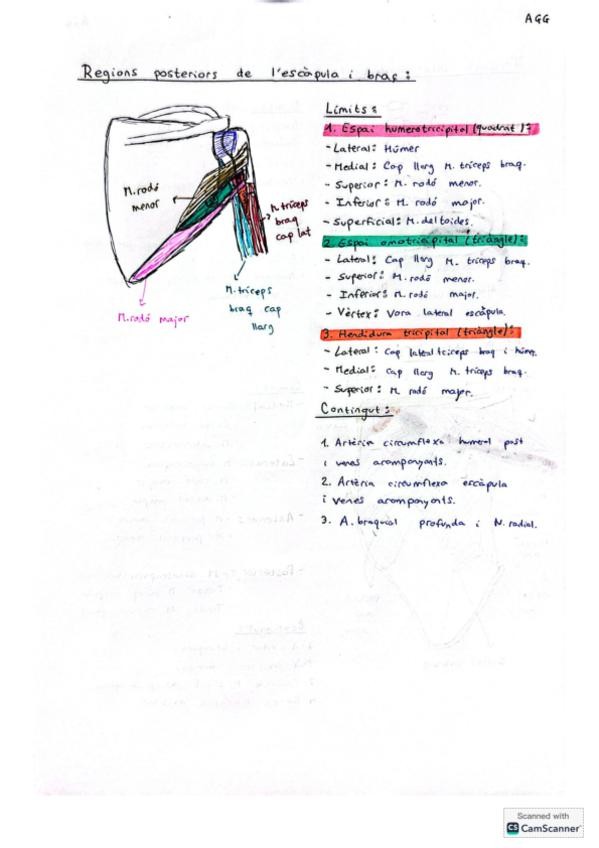 AGG
Regions posteriors de l'escàpula i braç:
M. rodó
menor
M. tríceps
braq
cap lat
M. tríceps
braq cap
llarg
M. rodó major
Límits:
1. Espai humerotricipital (quadrat):
- Lateral: Húmer
- Medial: Cap llarg M. tríceps braq.
- Superior: M. rodó menor.
- Inferior: M. rodó major.
- Superficial: M. deltoides.
2. Espai omotricipital (triangle):
- Lateral: Cap llarg M. tríceps braq.
- Superior: M. rodó menor.
- Inferior: M. rodó major.
- Vèrtex: Vora lateral escàpula.
3. Hendidura tricipital (triangle):
- Lateral: Cap lateral tríceps braq i húm.
- Medial: Cap llarg M. tríceps braq.
- Superior: M. rodó major.
Contingut:
1. Artèria circumflexa humeral post
i venes acompanyants.
2. Artèria circumflexa escàpula
i venes acompanyants.
3. A. braquial profunda i N. radial.
Scanned with
CS CamScanner